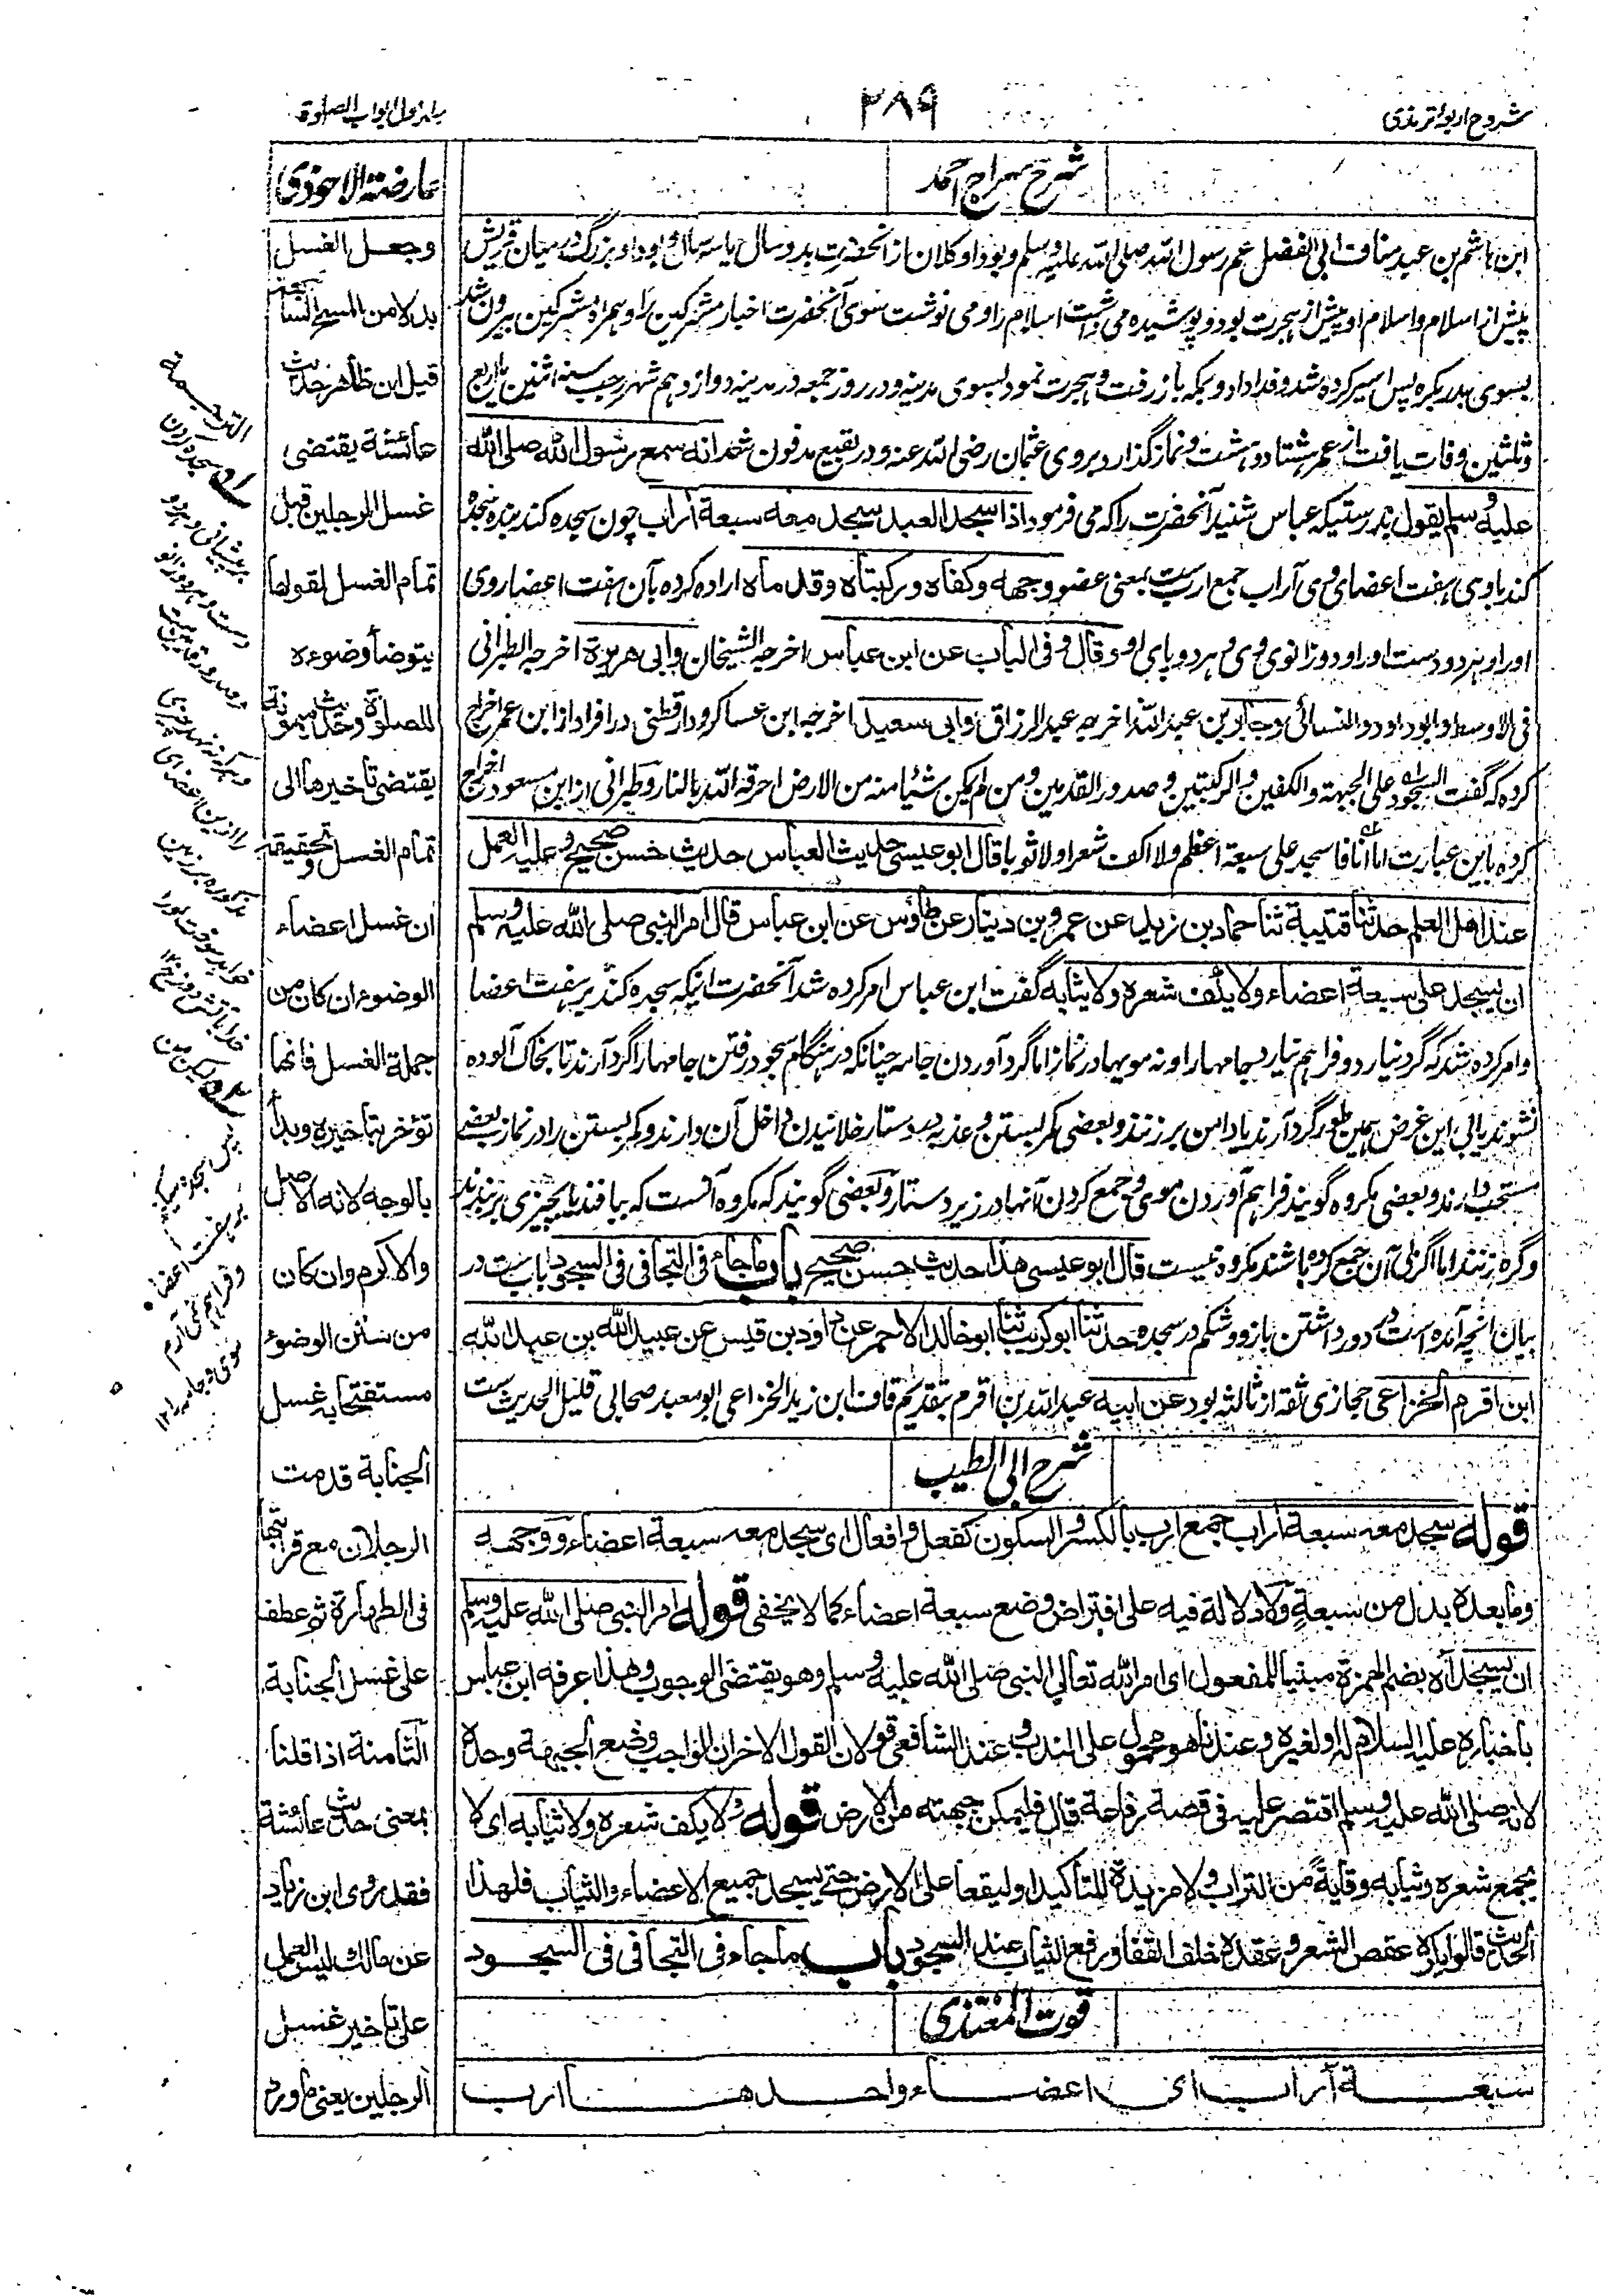 شروح اربعۂ ترمذی
۳۸۹
جلد اول ابواب الصلوة
شرح سراج احمد
ابن هاشم بن عبد مناف ابی الفضل عم رسول الله صلی الله علیه وسلم و بود او کلان از آنحضرت بدو سال یا سه سال و بود او بزرگ در میان قریش
پیش از اسلام و اسلام او پیش از هجرت بود و پوشیده می داشت اسلام را و می نوشت سوی آنحضرت اخبار مشرکین را و همراه مشرکین بیرون شد
بسوی بدر بکره پس اسیر کرده شد و فدا داد و بمکه باز رفت و هجرت نمود بسوی مدینه و در روز جمعه در مدینه دوازدهم شهر رجب سنه اثنین یا اربع
وثلثین وفات یافت از عمر هشتاد و هشت و نماز گذارد بروی عثمان رضی الله عنه و در بقیع مدفون شد انه سمع رسول الله صلی الله
علیه وسلم یقول بدرستیکه عباس شنید آنحضرت را که می فرمود اذا سجد العبد سجد معه سبعة آراب چون سجده کند بنده سجده
کند باوی هفت اعضای وی آراب جمع ارب ست بمعنی عضو وجهه وکفاه ورکبتاه وقدماه اراده کرده بآن هفت اعضا روی
او را و هر دو دست او را و دو زانوی وی و هر دو پای او و قال وفی الباب عن ابن عباس اخرجه الشیخان وابی هریرة اخرجه الطبرانی
فی الاوسط وابوداود والنسائی وجابر بن عبد الله اخرجه عبد الرزاق وابی سعید اخرجه ابن عساکر ودارقطنی در افراد از ابن عمر اخراج
کرده که گفت السجود علی الجبهة والکفین والرکبتین وصدور القدمین ومن لم یمکن شیئا منه من الارض احرقه الله بالنار وطبرانی از ابن مسعود اخراج
کرده باین عبارت اما انا فاسجد علی سبعة اعظم ولا اکف شعرا ولا ثوبا قال ابو عیسی حدیث العباس حدیث حسن صحیح وعلیه العمل
عند اهل العلم حدثنا قتیبة ثنا حماد بن زید عن عمرو بن دینار عن طاوس عن ابن عباس قال امر النبی صلی الله علیه وسلم
ان یسجد علی سبعة اعضاء ولا یکف شعره ولا ثیابه گفت ابن عباس امر کرده شد آنحضرت اینکه سجده کند بر هفت اعضا
وامر کرده شد که گرد نیارد و فراهم نیارد جامهارا ونه مویها در نماز اما گرد آوردن جامه چنانکه در هنگام سجود رفتن جامها را گرد آرند تا بخاک آلوده
نشوند یا بی این غرض همین طور گرد آرند یا دامن برزنند و بعضی کمر بستن و عذبه دستار خلانیدن داخل آن دارند و کمر بستن را در نماز بعضی
مستحب دارند و بعضی مکروه گویند فراهم آوردن موی و جمع کردن آنها در زیر دستار و بعضی گویند که مکروه آنست که ببافند یا بچیزی بربندند
وگره زنند اما اگر بی آن جمع کرده باشند مکروه نیست قال ابو عیسی هذا حدیث حسن صحیح باب ماجاء فی التجافی فی السجود باب ست در
بیان آنچه آمده است در دور داشتن بازو و شکم در سجده حدثنا ابو کریب ثنا ابو خالد الاحمر عن داود بن قیس عن عبید الله بن عبد الله
ابن اقرم الخزاعی حجازی ثقه از ثالثه بود عن ابیه عبد الله بن اقرم بتقدیم قاف ابن زید الخزاعی ابو معبد صحابی قلیل الحدیث ست
شرح ابی الطیب
قوله سجد معه سبعة آراب جمع ارب بالکسر والسکون کفعل وافعال ای سجد معه سبعة اعضاء ووجهه
وما بعده بدل من سبعة ولا دلالة فیه علی افتراض وضع سبعة اعضاء کما لا یخفی قوله امر النبی صلی الله علیه وسلم
ان یسجد آه بضم الهمزة مبنیا للمفعول ای امر الله تعالی النبی صلی الله علیه وسلم وهو یقتضی الوجوب وهذا عرفه ابن عباس
باخباره علیه السلام له او لغیره وعندنا هو محمول علی الندب وعند الشافعی قولان القول الآخر ان الواجب وضع الجبهة وحده
لانه صلی الله علیه وسلم اقتصر علیه فی قصة رفاعة قال فلیمکن جبهته من الارض قوله ولا یکف شعره ولا ثیابه ای لا
یجمع شعره وثیابه وقایة من التراب ولا مزیدة للتأکید او لیقعا علی الارض حتی یسجد جمیع الاعضاء والثیاب فلهذا
الحدیث قالوا یکره عقص الشعر وعقده خلف القفا ورفع الثیاب عند السجود باب ماجاء فی التجافی فی السجود
قوت المغتذی
سبعة آراب ای اعضاء واحدها ارب
عارضة الاحوذی
وجعل الغسل
بدلا من المسح
قیل ان ظاهر حدیث
عائشة یقتضی
غسل الرجلین قبل
تمام الغسل لقولها
یتوضأ وضوءه
للصلوة وحدیث میمونة
یقتضی تاخیرها الی
تمام الغسل وتحقیقه
ان غسل اعضاء
الوضوء ان کان من
جملة الغسل فانها
تؤخر بتاخیره وبدأ
بالوجه لانه الاصل
والاکرم وان کان
من سنن الوضوء
مستفتحا به غسل
الجنابة قدمت
الرجلان مع قرابتها
فی الطهارة ثم عطف
علی غسل الجنابة
الثامنة اذا قلنا
بمعنی حدیث عائشة
فقد روی ابن زیاد
عن مالک لیس العمل
علی تاخیر غسل
الرجلین یعنی ما ورد
سجده کردن
بر پیشانی و هر دو
دست و هر دو زانو
پس سجده میکنم
بر هفت اعضا
وفراهم نمی آرم
موی و جامه را ۱۲